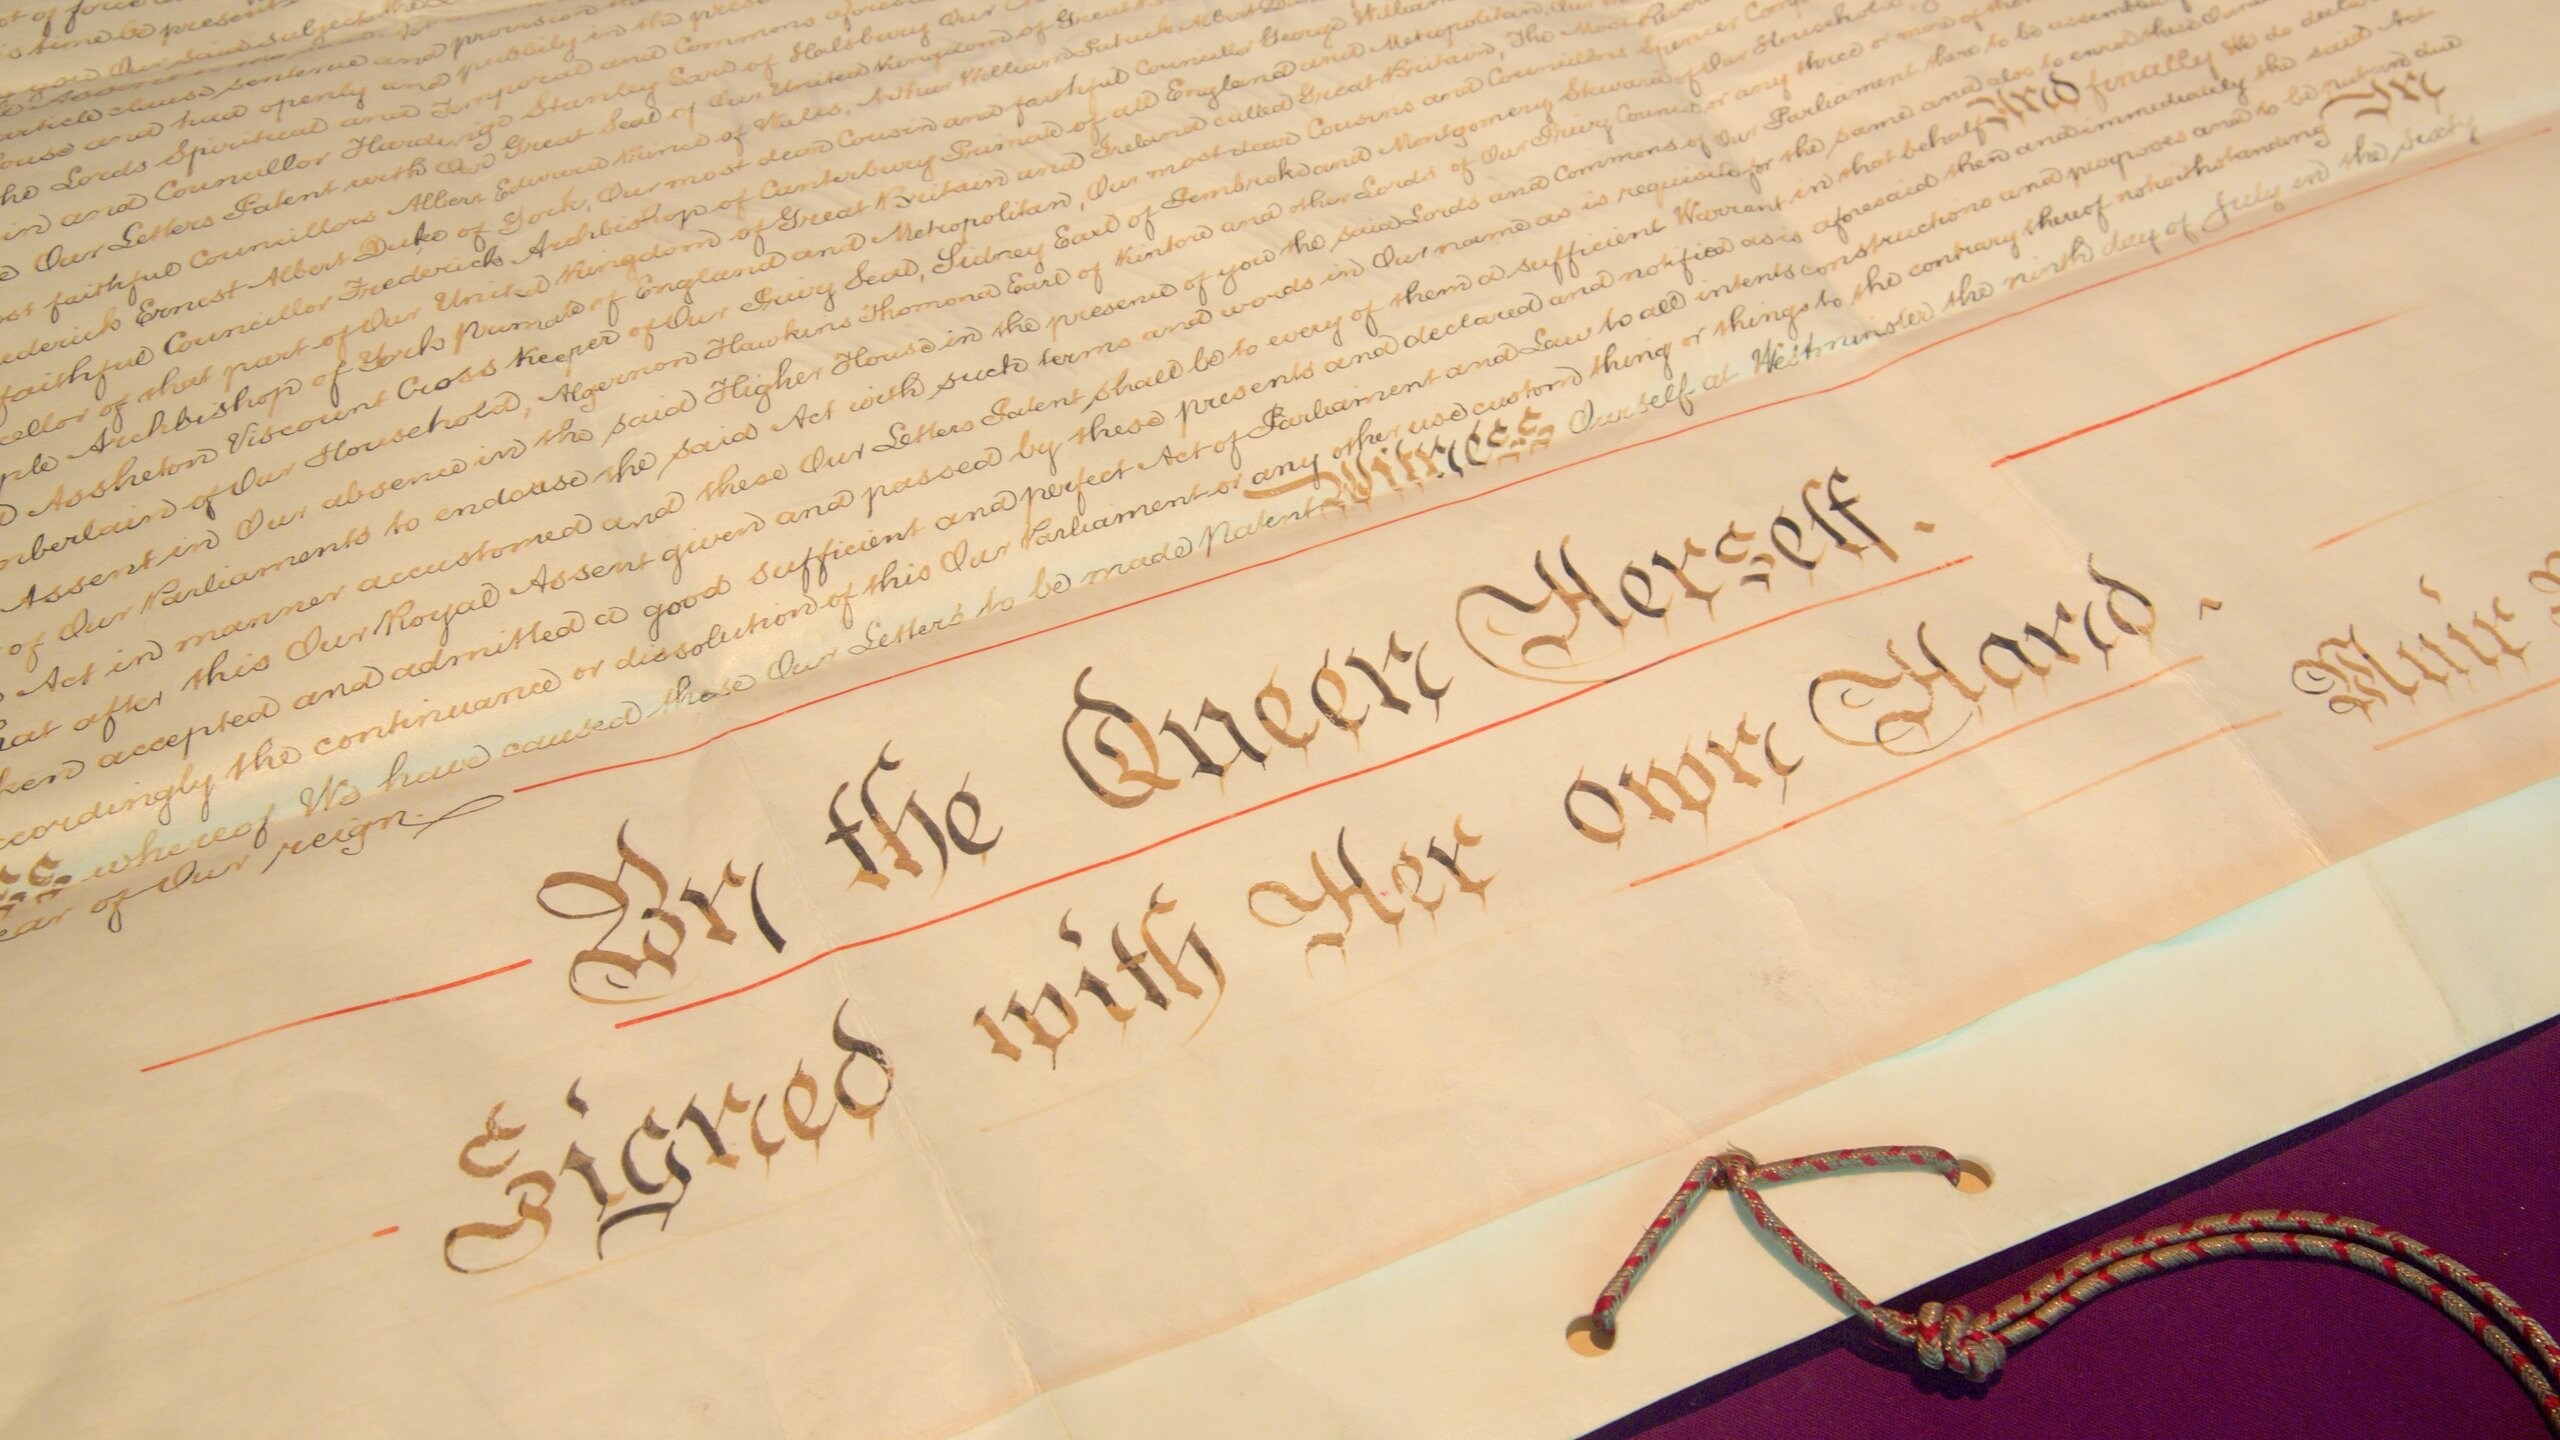 is time be present
you Our said subjects
article clause sentence and provision
House and had openly and publicly in the
the Lords Spiritual and Temporal and Commons aforesaid
in and Councillor Hardinge Stanley Earl of Halsbury Our
Our Letters Patent with Our Great Seal of Our United Kingdom of Great
faithful Councillors Albert Edward Prince of Wales, Arthur William Patrick Albert
Frederick Ernest Albert Duke of York, Our most dear Cousin and faithful Councillor George William
faithful Councillor Frederick Archbishop of Canterbury Primate of all England and Metropolitan,
of that part of Our United Kingdom of Great Britain and Ireland called Great Britain, The Most
Archbishop of York Primate of England and Metropolitan, Our most dear Cousins and Councillors Spencer
Assheton Viscount Cross Keeper of Our Privy Seal, Sidney Earl of Pembroke and Montgomery Steward of Our Household,
of Our Household, Algernon Hawkins Thomond Earl of Kintore and other Lords of Our Privy Council or any three or more of
Assent in Our absence in the said Higher House in the presence of you the said Lords and Commons of Our Parliament there to be
of Our Parliaments to endorse the said Act with such terms and words in Our name as is requisite for the same and also to enrol these
Act in manner accustomed and these Our Letters Patent shall be to every of them a sufficient Warrant in that behalf And finally We do declare
that after this Our Royal Assent given and passed by these presents and declared and notified as is aforesaid then and immediately the said Act
accepted and admitted a good sufficient and perfect Act of Parliament and Law to all intents constructions and purposes and to be put in due
accordingly the continuance or dissolution of this Our Parliament or any other use custom thing or things to the contrary thereof notwithstanding In
whereof We have caused these Our Letters to be made Patent Witness Ourself at Westminster the ninth day of July in the sixty
year of Our reign.
By the Queen Herself.
Signed with Her own Hand.
Muir